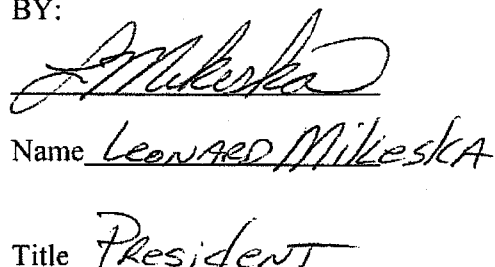 BY:
LMikeska
Name Leonard Mikeska
Title President